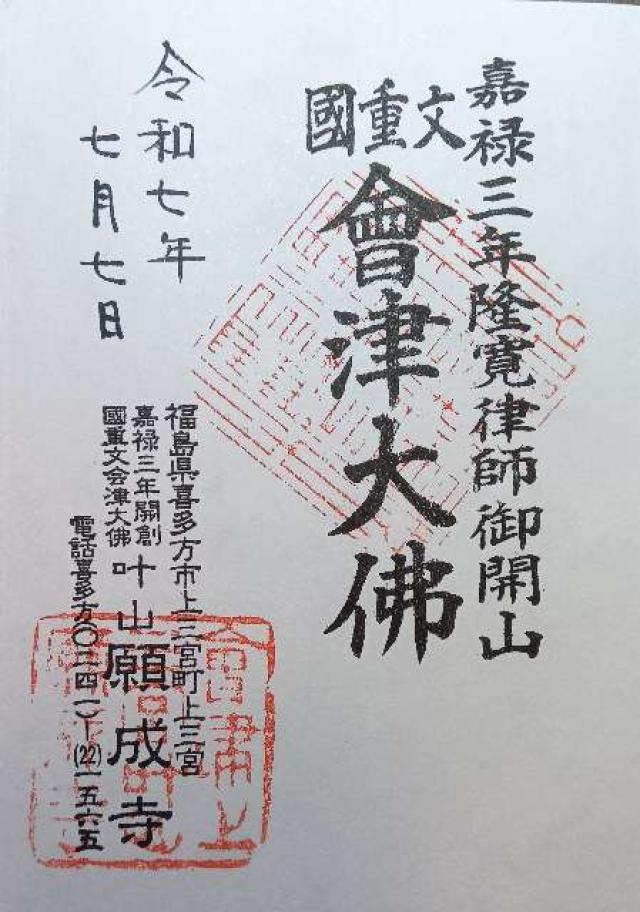 嘉禄三年隆寛律師御開山
國重文
會津大佛
令和七年
七月七日
福島県喜多方市上三宮町上三宮
嘉禄三年開創
國重文会津大佛
叶山願成寺
電話喜多方〇二四一)ー(22)一五六五